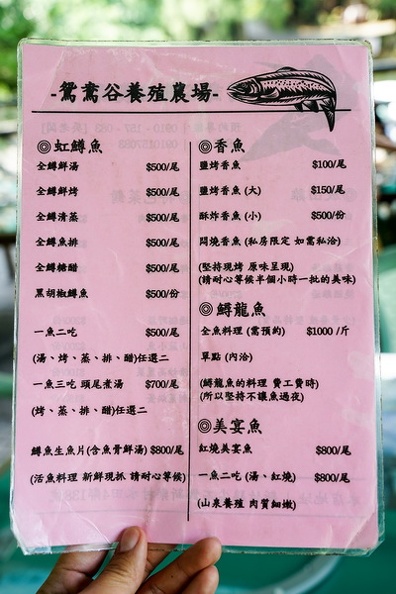 -鴛鴦谷養殖農場-
◎虹鱒魚
全鱒鮮湯 $500/尾
全鱒鮮烤 $500/尾
全鱒清蒸 $500/尾
全鱒魚排 $500/尾
全鱒糖醋 $500/尾
黑胡椒鱒魚 $500/份
一魚二吃 $500/尾
(湯、烤、蒸、排、醋)任選二
一魚三吃 頭尾煮湯 $700/尾
(烤、蒸、排、醋)任選二
鱒魚生魚片(含魚骨鮮湯) $800/尾
(活魚料理 新鮮現抓 請耐心等候)
◎香魚
鹽烤香魚 $100/尾
鹽烤香魚 (大) $150/尾
酥炸香魚 (小) $500/份
悶燒香魚 (私房限定 如需私洽)
(堅持現烤 原味呈現)
(請耐心等候半個小時一批的美味)
◎鱘龍魚
全魚料理 (需預約) $1000 /斤
單點 (內洽)
(鱘龍魚的料理 費工費時)
(所以堅持不讓魚過夜)
◎美宴魚
紅燒美宴魚 $800/尾
一魚二吃 (湯、紅燒) $800/尾
(山泉養殖 肉質細嫩)